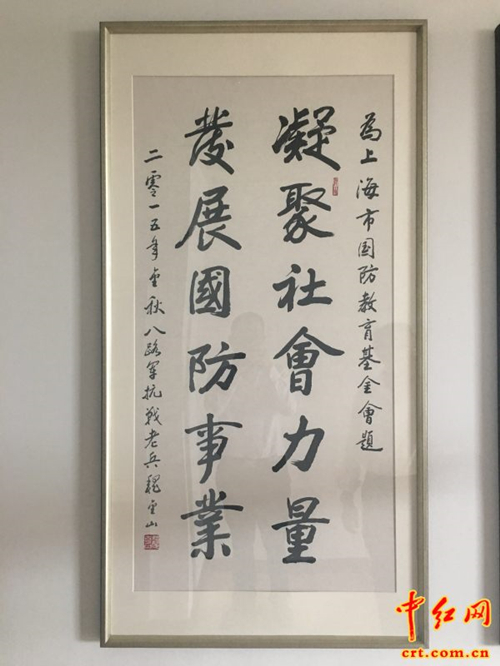 為上海市国防教育基金會題
凝聚社會力量
發展國防事業
二零一五年秋八路军抗戰老兵魏山
中红网
crt.com.cn